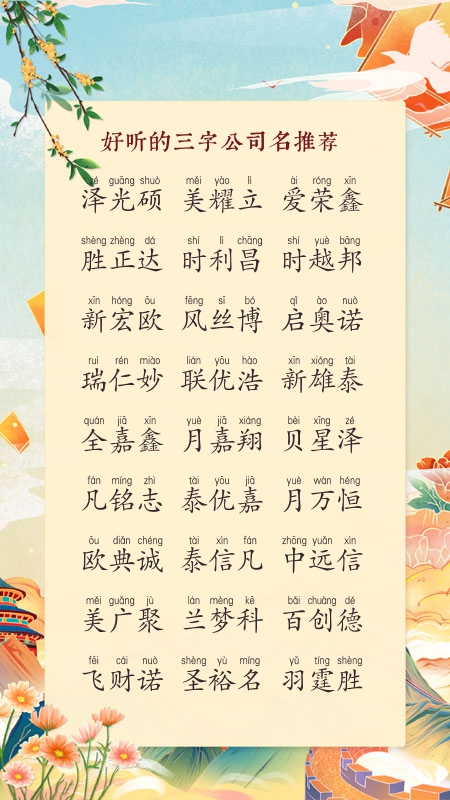 好听的三字公司名推荐
zé guāng shuò měi yào lì ài róng xīn
泽光硕 美耀立 爱荣鑫
shèng zhèng dá shí lì chāng shí yuè bāng
胜正达 时利昌 时越邦
xīn hóng ōu fēng sī bó qǐ ào nuò
新宏欧 风丝博 启奥诺
ruì rén miào lián yōu hào xīn xióng tài
瑞仁妙 联优浩 新雄泰
quán jiā xīn yuè jiā xiáng bèi xīng zé
全嘉鑫 月嘉翔 贝星泽
fán míng zhì tài yōu jiā yuè wàn héng
凡铭志 泰优嘉 月万恒
ōu diǎn chéng tài xìn fán zhōng yuǎn xìn
欧典诚 泰信凡 中远信
měi guǎng jù lán mèng kē bǎi chuàng dé
美广聚 兰梦科 百创德
fēi cái nuò shèng yù míng yǔ tíng shèng
飞财诺 圣裕名 羽霆胜